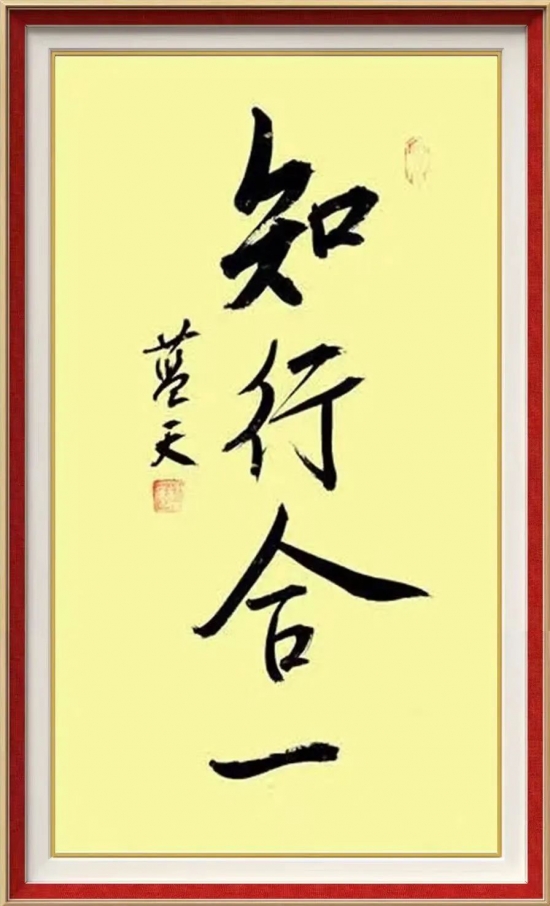 知行合一
蓝天